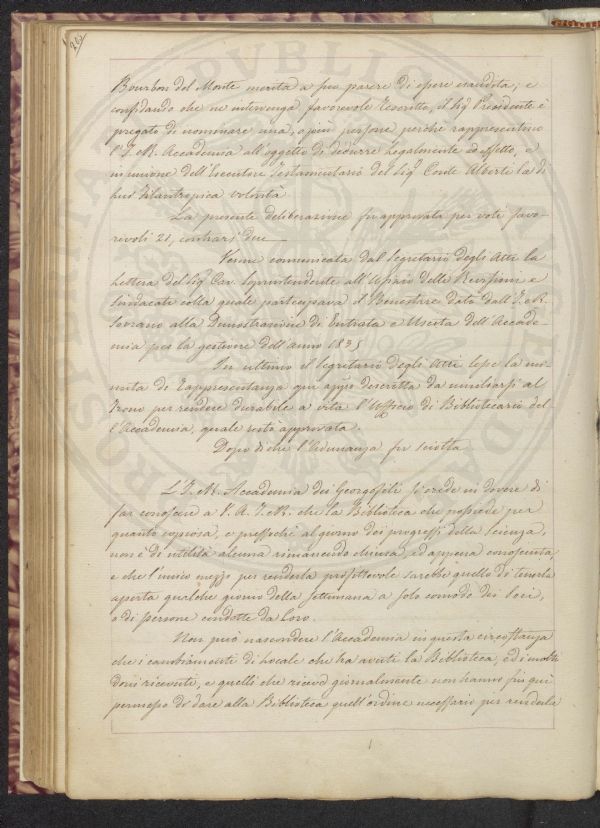 262
Bourbon del Monte merita a suo parere di essere esaudita; e
confidando che ne intervenga favorevole Rescritto, il Sig. Presidente è
pregato di nominare una, o più persone perchè rappresentino
l'I. e R. Accademia all'oggetto di dedurre legalmente ad effetto, e
in unione dell'Esecutore Testamentario del Sig. Conte Alberti la di
lui filantropica volontà
La presente deliberazione fu approvata per voti favo-
revoli 20, contrarj due
Venne comunicata dal Segretario degli Atti la
Lettera del Sig. Cav. Soprintendente all'Ufizio delle Revisioni e
Sindacati colla quale partecipava il Benestare dato dall'I. e R.
Sovrano alla Dimostrazione di Entrata e Uscita dell'Accade-
mia per la gestione dell'anno 1835
In ultimo il Segretario degli Atti lesse la mi-
nuta di Rappresentanza qui appo descritta da umiliarsi al
Trono per rendere durabile a vita l'Uffizio di Bibliotecario del
l'Accademia, quale restò approvata.
Dopo di che l'Adunanza fu sciolta
L'I. e R. Accademia dei Georgofili si crede in dovere di
far conoscere a V. A. I. e R. che la Biblioteca che possiede per
quanto copiosa, e pressochè al giorno dei progressi della scienza,
non è di utilità alcuna rimanendo chiusa, ed appena conosciuta
e che l'unico mezzo per renderla profittevole sarebbe quello di tenerla
aperta qualche giorno della settimana a solo comodo dei Soci,
o di persone condotte da loro.
Non può nascondere l'Accademia in questa circostanza
che i cambiamenti di Locale che ha avuti la Biblioteca, ed i molti
doni ricevuti, e quelli che riceve giornalmente non hanno fin qui
permesso di dare alla Biblioteca quell'ordine necessario per renderla